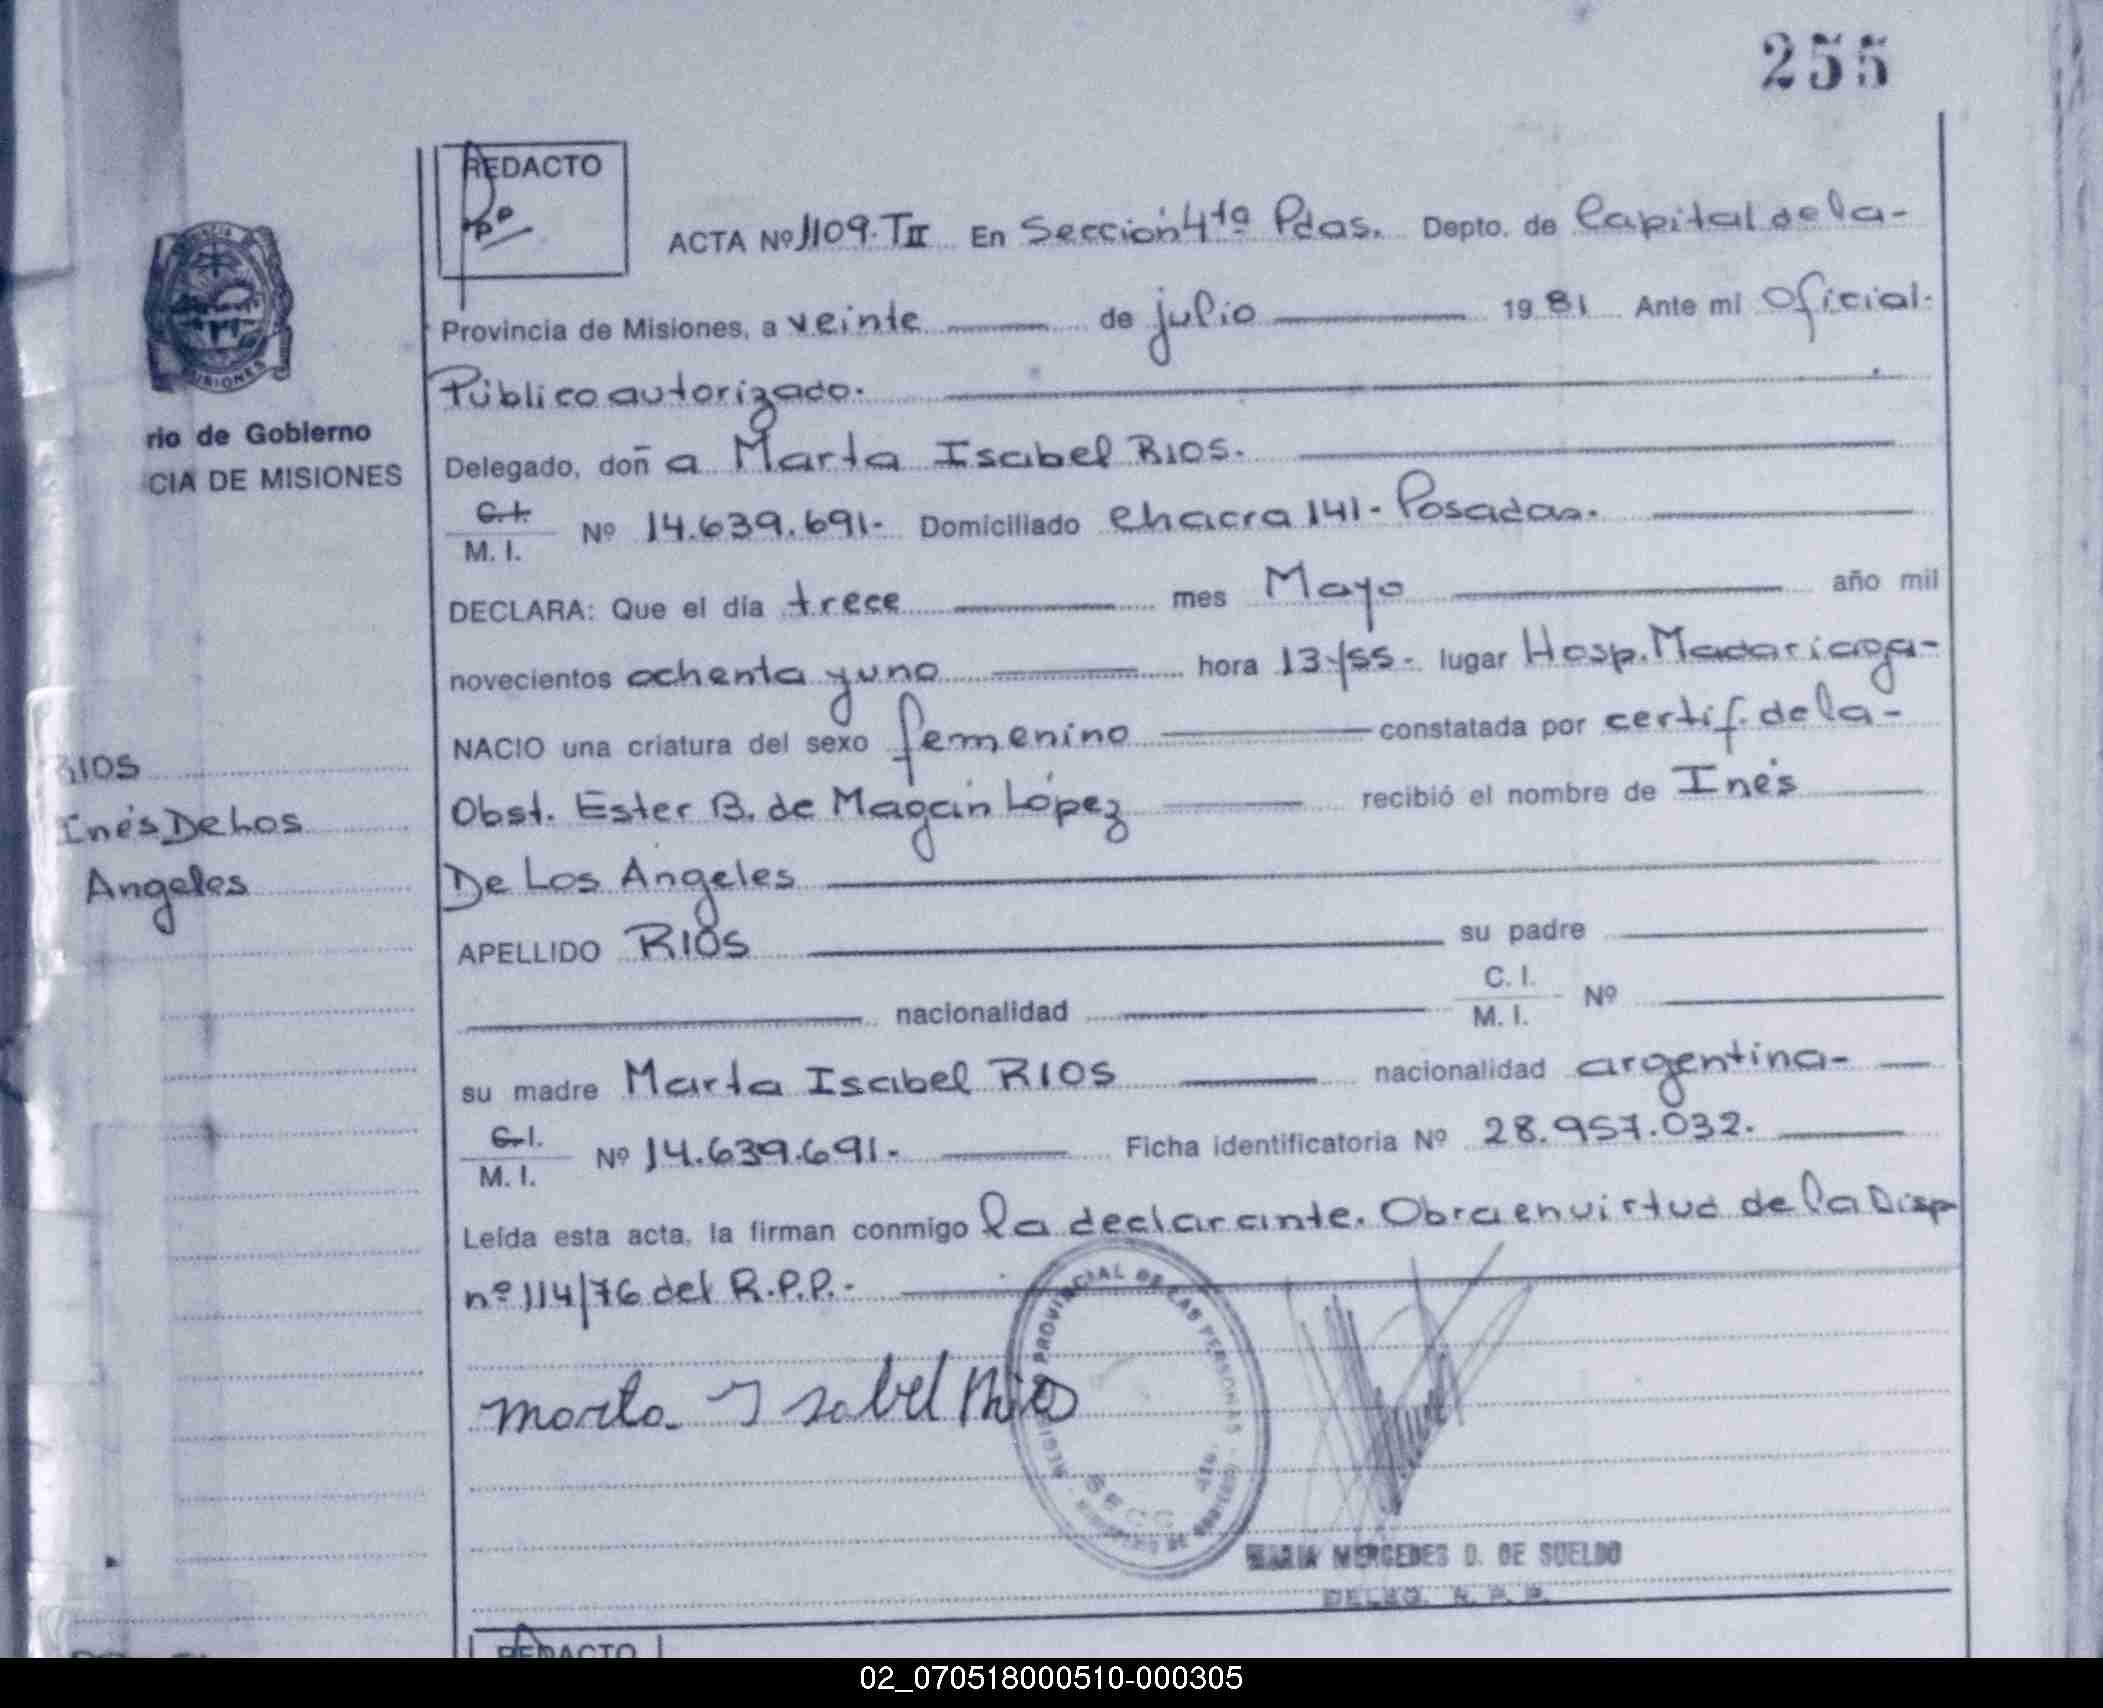 255
REDACTO
ACTA Nº 1109.TII En Sección 4ta Pdas. Depto. de Capital de la-
Provincia de Misiones, a veinte de julio 1981 Ante mi Oficial-
Público autorizado.
rio de Gobierno
CIA DE MISIONES
Delegado, doña Marta Isabel RIOS.
C.I.
M. I. Nº 14.639.691- Domiciliado chacra 141- Posadas.
DECLARA: Que el día trece mes Mayo año mil
novecientos ochenta y uno hora 13/55- lugar Hosp. Madariaga-
NACIO una criatura del sexo femenino constatada por certif. de la-
RIOS
Inés De Los
Angeles
Obst. Ester B. de Magán López recibió el nombre de Inés
De Los Angeles
APELLIDO RIOS su padre
nacionalidad C. I.
M. I. Nº
su madre Marta Isabel RIOS nacionalidad argentina-
C.I.
M. I. Nº 14.639.691.- Ficha identificatoria Nº 28.957.032.
Leída esta acta, la firman conmigo la declarante. Obra en virtud de la Disp
nº 114/76 del R.P.P.-
Marta Isabel Rios
PROVINCIAL DE LAS PERSONAS
SECC 4ta.
MARIA MERCEDES D. DE SUELDO
DELEG. R. P. P.
REDACTO
02_070518000510-000305